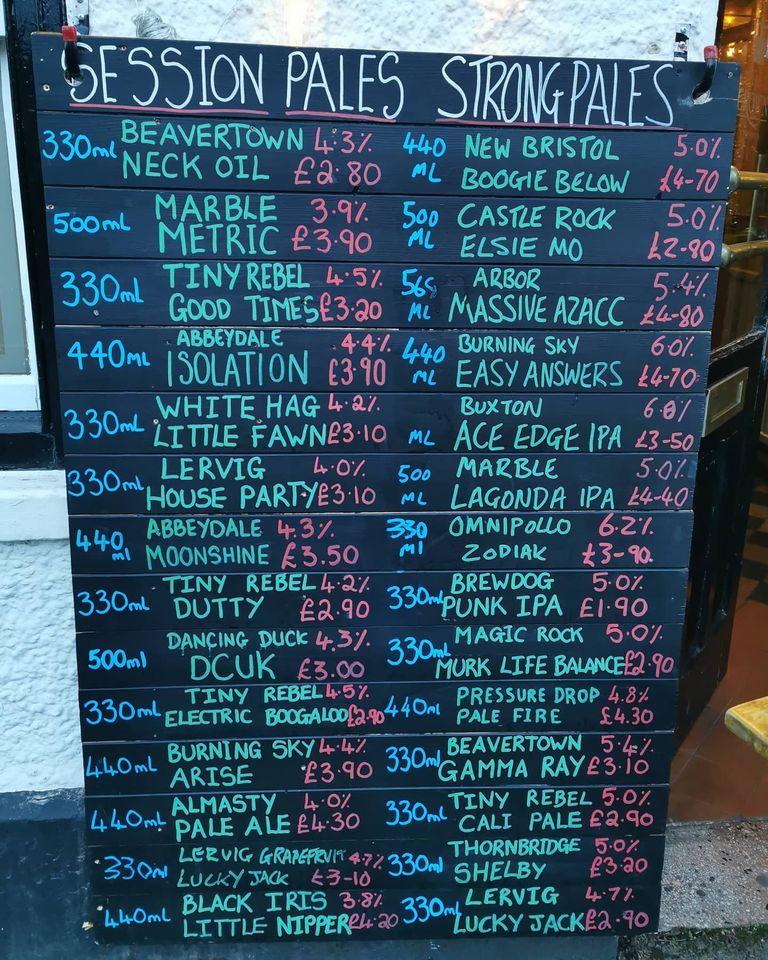 SESSION PALES
330ml BEAVERTOWN 4.3%
NECK OIL £2.80
500ml MARBLE 3.9%
METRIC £3.90
330ml TINY REBEL 4.5%
GOOD TIMES £3.20
440ml ABBEYDALE 4.4%
ISOLATION £3.90
330ml WHITE HAG 4.2%
LITTLE FAWN £3.10
330ml LERVIG 4.0%
HOUSE PARTY £3.10
440 ml ABBEYDALE 4.3%
MOONSHINE £3.50
330ml TINY REBEL 4.2%
DUTTY £2.90
500ml DANCING DUCK 4.3%
DCUK £3.00
330ml TINY REBEL 4.5%
ELECTRIC BOOGALOO £2.90
440ml BURNING SKY 4.4%
ARISE £3.90
440ML ALMASTY 4.0%
PALE ALE £4.30
330ml LERVIG GRAPEFRUIT 4.7%
LUCKY JACK £3-10
440ml BLACK IRIS 3.8%
LITTLE NIPPER £4.20
STRONG PALES
440 NEW BRISTOL 5.0%
ML BOOGIE BELOW £4-70
500 CASTLE ROCK 5.0%
ML ELSIE MO £2-90
568 ARBOR 5.4%
ML MASSIVE AZACC £4-80
440 BURNING SKY 6.0%
ML EASY ANSWERS £4-70
BUXTON
ML ACE EDGE IPA £3-50
500 MARBLE 5.0%
ML LAGONDA IPA £4-40
330 OMNIPOLLO 6.2%
ml ZODIAK £3-90
330ml BREWDOG 5.0%
PUNK IPA £1.90
330ml MAGIC ROCK 5.0%
MURK LIFE BALANCE £2.90
440ml PRESSURE DROP 4.8%
PALE FIRE £4.30
330ml BEAVERTOWN 5.4%
GAMMA RAY £3.10
330ml TINY REBEL 5.0%
CALI PALE £2.90
330ml THORNBRIDGE 5.0%
SHELBY £3.20
330ml LERVIG 4.7%
LUCKY JACK £2.90